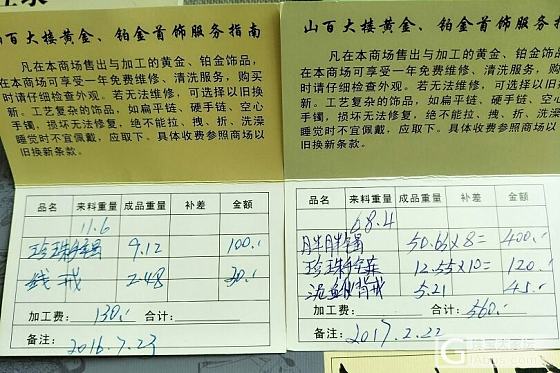 山百大楼黄金、铂金首饰服务指南
凡在本商场售出与加工的黄金、铂金饰品,
在本商场可享受一年免费维修、清洗服务,购买
时请仔细检查外观。若无法维修,可选择以旧换
新。工艺复杂的饰品,如扁平链、硬手链、空心
手镯,损坏无法修复,绝不能拉、拽、折、洗澡
睡觉时不宜佩戴,应取下。具体收费参照商场以
旧换新条款。
品名 来料重量 成品重量 补差 金额
11.6
珍珠手镯 9.12 100.
线戒 2.48 30.
加工费: 130. 合计:
备注: 2016.7.23
山百大楼黄金、铂金首饰服务
凡在本商场售出与加工的黄金、铂金饰
在本商场可享受一年免费维修、清洗服务,
时请仔细检查外观。若无法维修,可选择以
新。工艺复杂的饰品,如扁平链、硬手链、
手镯,损坏无法修复,绝不能拉、拽、折、
睡觉时不宜佩戴,应取下。具体收费参照商
旧换新条款。
品名 来料重量 成品重量 补差 金额
68.4
胖胖镯 50.66×8= 400.
珍珠手 12.55×10= 120.
泥鳅背戒 5.21 45.
加工费: 合计: 560.
备注: 2017.2.22